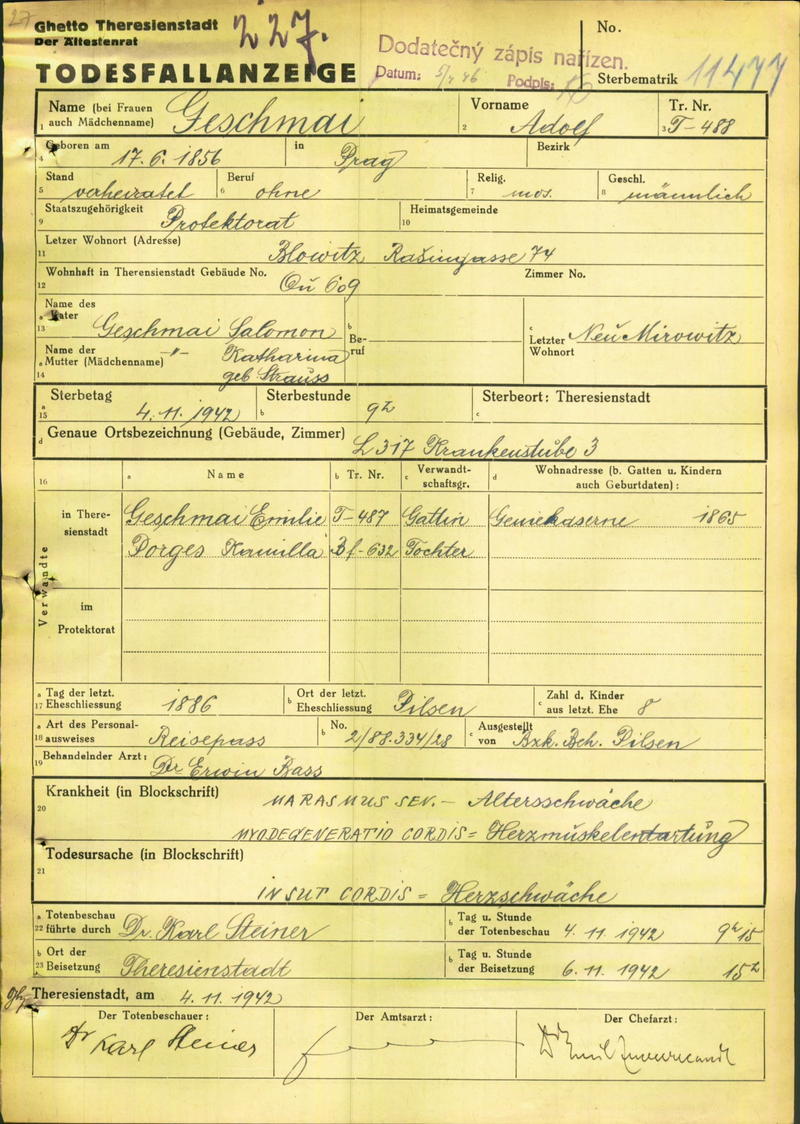 27
Ghetto Theresienstadt
Der Ältestenrat
227.
TODESFALLANZEIGE
Dodatečný zápis nařízen.
Datum: Podpis:
No.
Sterbematrik 11477
Name (bei Frauen auch Mädchenname) Geschmai
1
Vorname
2 Adolf
Tr. Nr.
3 T-488
Geboren am
4 17. 6. 1856
in Prag
Bezirk
Stand
5 verheiratet
Beruf
6 ohne
Relig.
7 mos.
Geschl.
8 männlich
Staatszugehörigkeit
9 Protektorat
Heimatsgemeinde
10
Letzer Wohnort (Adresse)
11 Blowitz Rašingasse 74
Wohnhaft in Therensienstadt Gebäude No.
12 Qu 609
Zimmer No.
Name des
a Vater
13 Geschmai Salomon
b Beruf
c Letzter Wohnort Neu Mirowitz
Name der
a Mutter (Mädchenname) -"- Katharina
14 geb Strauss
Sterbetag
a 15 4. 11. 1942
Sterbestunde
b 9h
Sterbeort: Theresienstadt
c
d Genaue Ortsbezeichnung (Gebäude, Zimmer) L 317 Krankenstube 3
16 a Name b Tr. Nr. c Verwandtschaftsgr. d Wohnadresse (b. Gatten u. Kindern auch Geburtdaten):
Verwandte
in Theresienstadt
Geschmai Emilie T-487 Gattin Geniekaserne 1865
Porges Kamilla Bf-632 Tochter
im Protektorat
a Tag der letzt.
17 Eheschliessung 1886
b Ort der letzt. Eheschliessung Pilsen
c Zahl d. Kinder aus letzt. Ehe 8
a Art des Personal-
18 ausweises Reisepass
b No. 2/88.334/28
c Ausgestellt von Bzk. Bch. Pilsen
19 Behandelnder Arzt: Dr Erwin Bass
Krankheit (in Blockschrift)
20 MARASMUS SEN. – Altersschwäche
MYODEGENERATIO CORDIS = Herzmuskelentartung
Todesursache (in Blockschrift)
21
INSUF CORDIS = Herzschwäche
a Totenbeschau
22 führte durch Dr. Karl Steiner
b Tag u. Stunde
der Totenbeschau 4. 11. 1942 9h 15
b Ort der
23 Beisetzung Theresienstadt
b Tag u. Stunde
der Beisetzung 6. 11. 1942 15h
Theresienstadt, am 4. 11. 1942
Der Totenbeschauer:
Dr Karl Steiner
Der Amtsarzt:
Der Chefarzt:
Dr Emil